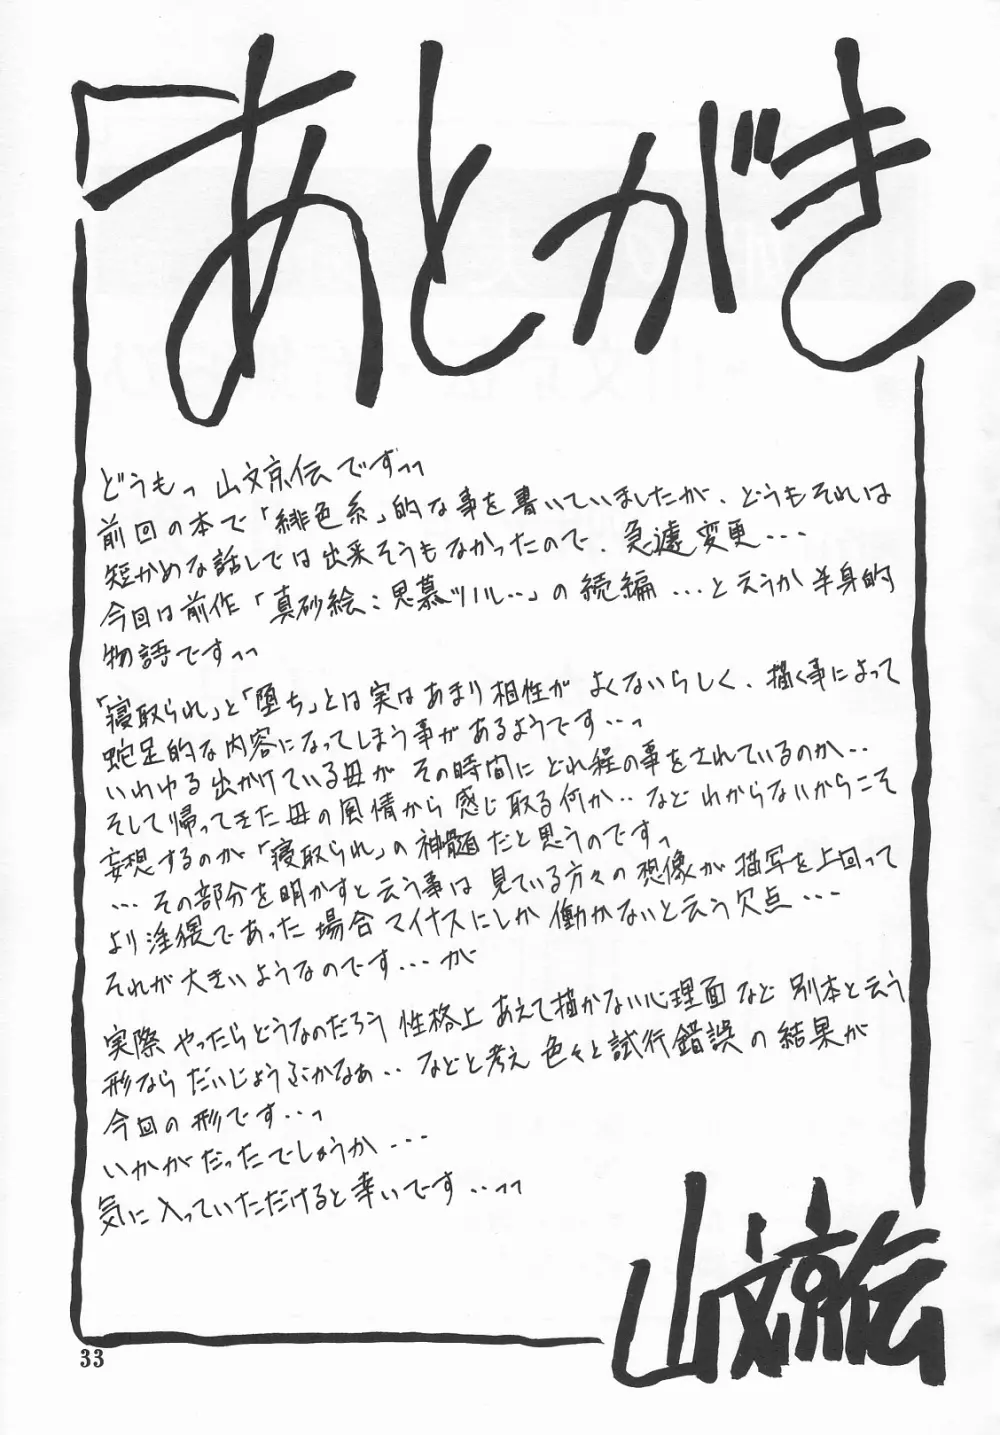 あとがき
どうもっ 山文京伝ですっっ
前回の本で「緋色系」的な事を書いていましたが、どうもそれは
短かめな話しでは出来そうもなかったので、急遽変更・・・
今回は前作「真砂絵：思慕ツハル‥」の続編・・・と云うか半身的
物語ですっっ
「寝取られ」と「堕ち」とは実はあまり相性が よくないらしく、描く事によって
蛇足的な内容になってしまう事があるようです・・・っ
いわゆる出かけている母が その時間に どれ程の事をされているのか‥
そして帰ってきた母の風情から感じ取る何か‥ など わからないからこそ
妄想するのが「寝取られ」の神髄だと思うのですっ
・・・その部分を明かすと云う事は 見ている方々の想像が描写を上回って
より淫猥であった場合マイナスにしか働かないと云う欠点・・・
それが大きいようなのです・・・が
実際やったらどうなのだろう 性格上あえて描かない心理面など 別本と云う
形なら だいじょうぶかなぁ‥ などと考え 色々と試行錯誤の結果が
今回の形です・・・っ
いかがだったでしょうか・・・
気に入っていただけると幸いです・・・っっ
山文京伝
33